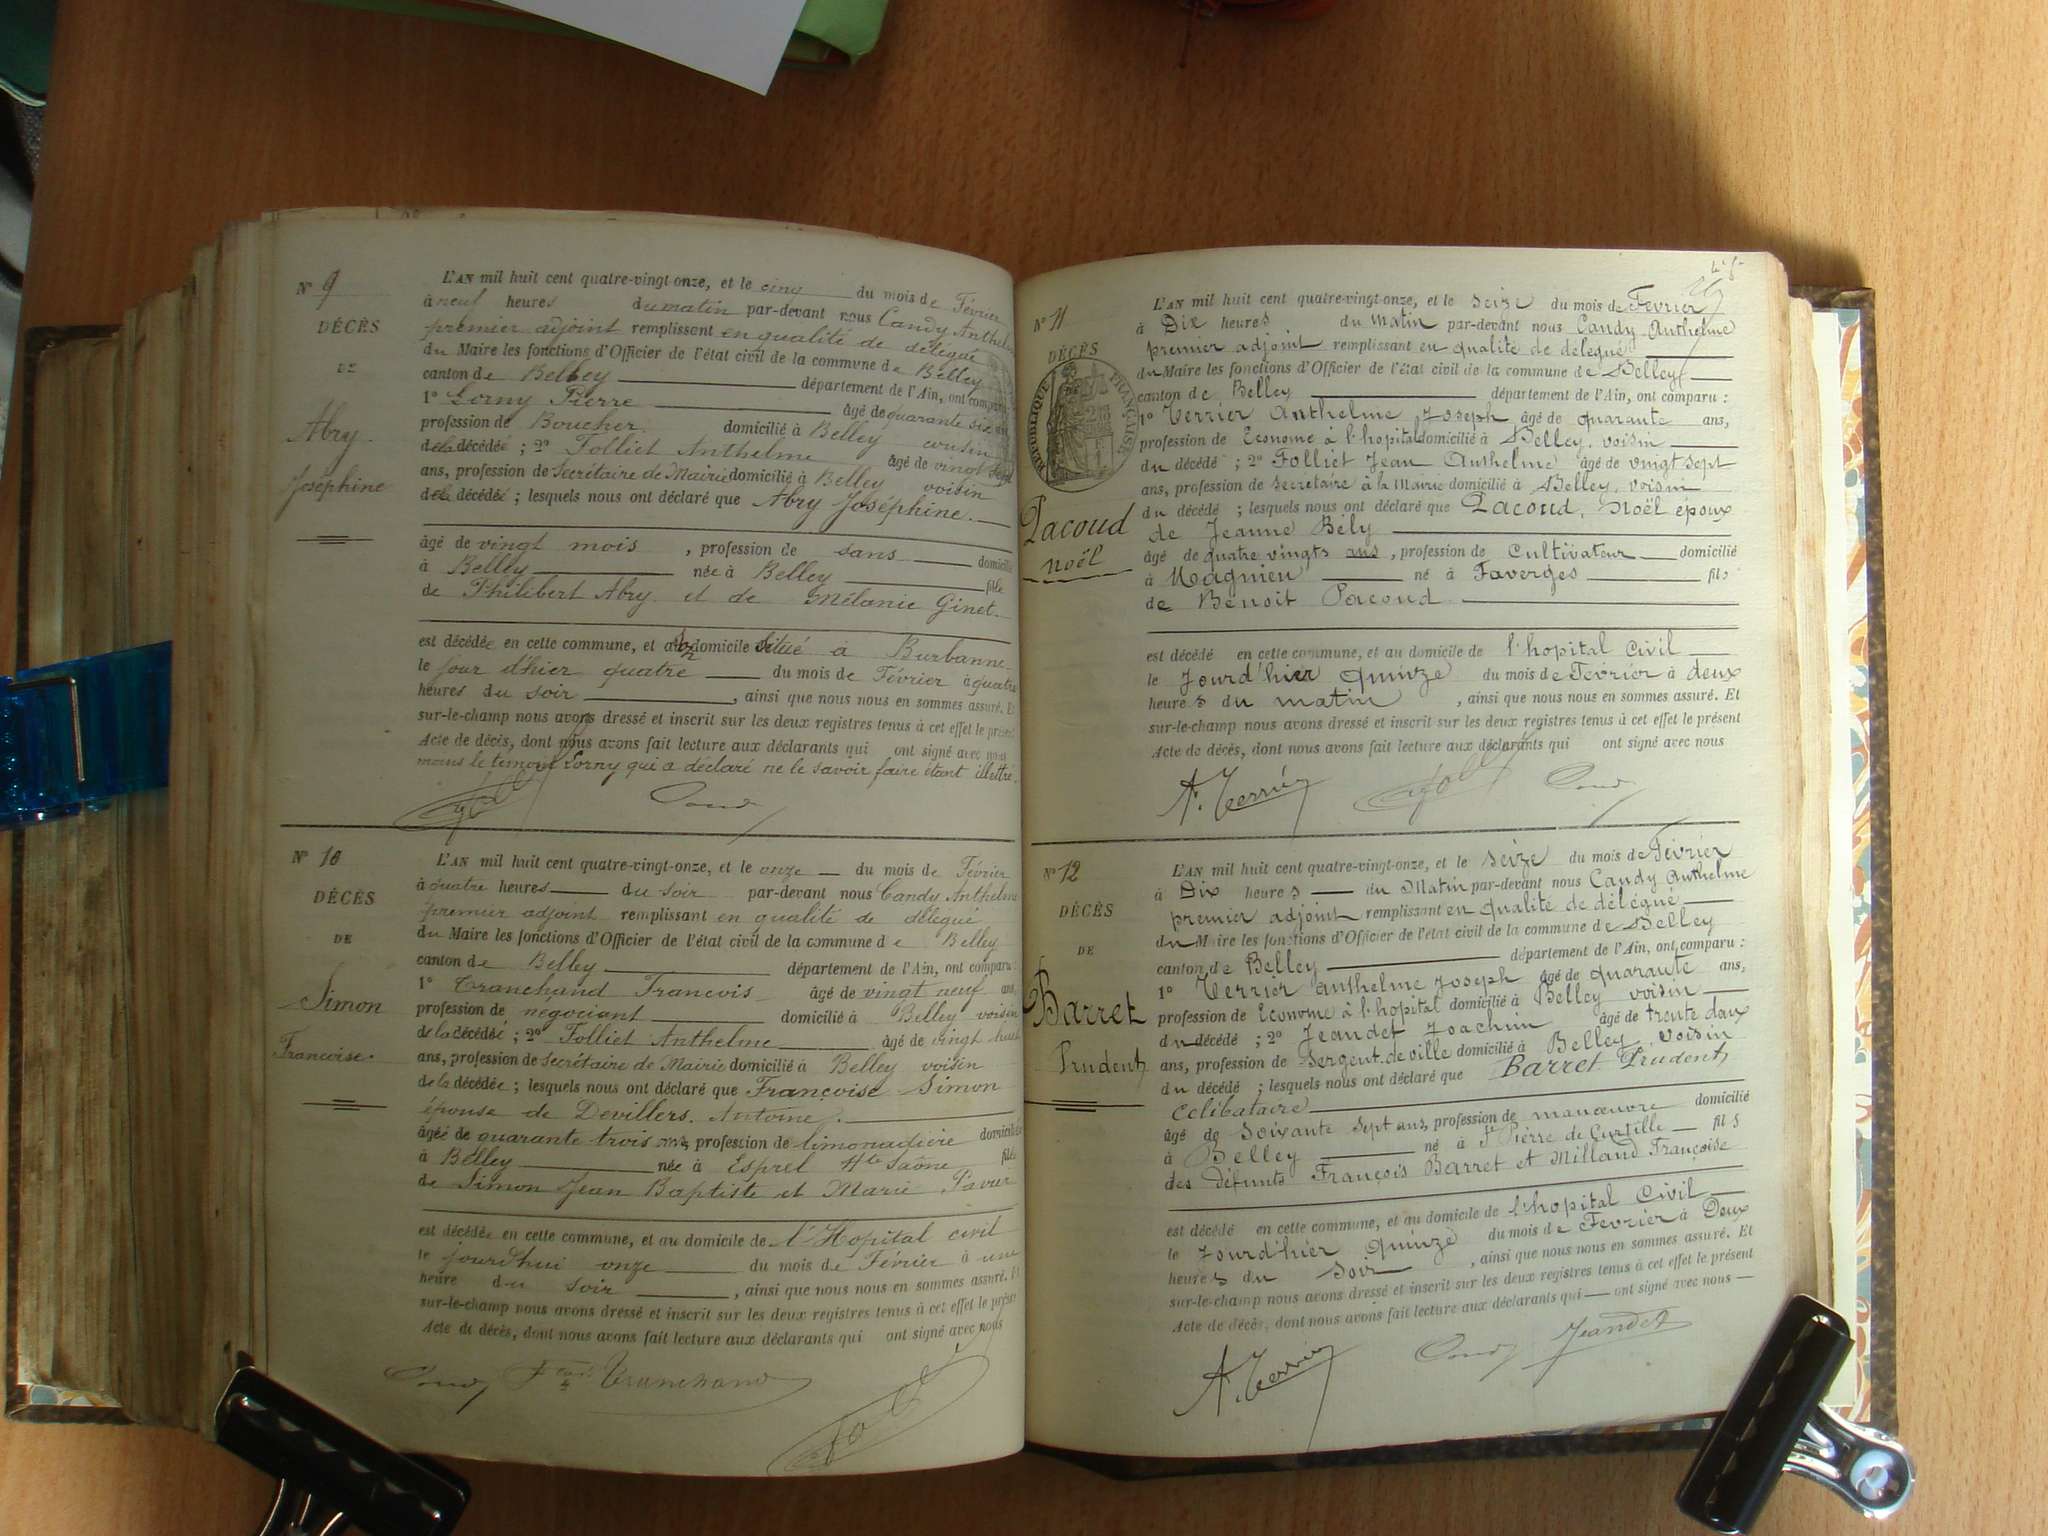 N° 9
DÉCÈS
DE
Abry
Joséphine
L'AN mil huit cent quatre-vingt-onze, et le cinq du mois de Février
à neuf heures du matin par-devant nous Candy Anthelme
premier adjoint remplissant en qualité de délégué
du Maire les fonctions d'Officier de l'état civil de la commune de Belley
canton de Belley département de l'Ain, ont comparu
1° Lorny Pierre âgé de quarante six ans
profession de Boucher domicilié à Belley cousin
de la décédée ; 2° Folliet Anthelme âgé de vingt sept
ans, profession de Secrétaire de Mairie domicilié à Belley voisin
de la décédée ; lesquels nous ont déclaré que Abry Joséphine.
âgé de vingt mois , profession de sans domicilié
à Belley née à Belley fille
de Philibert Abry et de Mélanie Ginet.
est décédée en cette commune, et a domicile situé à Burbanne
le jour d'hier quatre du mois de Février à quatre
heures du soir , ainsi que nous nous en sommes assuré. Et
sur-le-champ nous avons dressé et inscrit sur les deux registres tenus à cet effet le présent
Acte de décès, dont nous avons fait lecture aux déclarants qui ont signé avec nous
moins le témoin Lorny qui a déclaré ne le savoir faire étant illettré.
Candy
N° 10
DÉCÈS
DE
Simon
Françoise.
L'AN mil huit cent quatre-vingt-onze, et le onze du mois de Février
à quatre heures du soir par-devant nous Candy Anthelme
premier adjoint remplissant en qualité de délégué
du Maire les fonctions d'Officier de l'état civil de la commune de Belley
canton de Belley département de l'Ain, ont comparu
1° Tranchand Francois âgé de vingt neuf ans,
profession de négociant domicilié à Belley voisin
de la décédé ; 2° Folliet Anthelme âgé de vingt huit
ans, profession de Secrétaire de Mairie domicilié à Belley voisin
de la décédée ; lesquels nous ont déclaré que Françoise Simon
épouse de Devillers. Antoine.
âgée de quarante trois ans, profession de limonadière domiciliée
à Belley née à Esprel Hte Saône fille
de Simon Jean Baptiste et Marie Pavier
est décédée en cette commune, et au domicile de l'Hopital civil
le jourd'hui onze du mois de Février à une
heure du soir , ainsi que nous nous en sommes assuré. Et
sur-le-champ nous avons dressé et inscrit sur les deux registres tenus à cet effet le présent
Acte de décès, dont nous avons fait lecture aux déclarants qui ont signé avec nous
Candy Tranchand
N° 11
DÉCÈS
RÉPUBLIQUE FRANÇAISE
Pacoud
noël
L'AN mil huit cent quatre-vingt-onze, et le seize du mois de Fevrier
à Dix heures du Matin par-devant nous Candy Anthelme
premier adjoint remplissant en qualité de délégué
du Maire les fonctions d'Officier de l'état civil de la commune de Belley
canton de Belley département de l'Ain, ont comparu :
1° Terrier Anthelme Joseph âgé de quarante ans,
profession de Econome à l'hopital domicilié à Belley, voisin
du décédé ; 2° Folliet Jean Anthelme âgé de vingt sept
ans, profession de secretaire à la Mairie domicilié à Belley, voisin
du décédé ; lesquels nous ont déclaré que Pacoud, Noël époux
de Jeanne Bély
âgé de quatre vingts ans , profession de Cultivateur domicilié
à Magnieu né à Faverges fils
de Benoit Pacoud
est décédé en cette commune, et au domicile de l'hopital Civil
le Jourd'hier quinze du mois de Février à deux
heures du matin , ainsi que nous nous en sommes assuré. Et
sur-le-champ nous avons dressé et inscrit sur les deux registres tenus à cet effet le présent
Acte de décès, dont nous avons fait lecture aux déclarants qui ont signé avec nous
A. Terrier Candy
N° 12
DÉCÈS
DE
Barret
Prudent
L'AN mil huit cent quatre-vingt-onze, et le seize du mois de Février
à Dix heures du Matin par-devant nous Candy Anthelme
premier adjoint remplissant en qualité de délégué
du Maire les fonctions d'Officier de l'état civil de la commune de Belley
canton de Belley département de l'Ain, ont comparu :
1° Terrier Anthelme Joseph âgé de quarante ans,
profession de Econome à l'hopital domicilié à Belley voisin
du décédé ; 2° Jeandet Joachim âgé de trente deux
ans, profession de Sergent de ville domicilié à Belley, voisin
du décédé ; lesquels nous ont déclaré que Barret Prudent
célibataire
âgé de soixante sept ans, profession de manœuvre domicilié
à Belley né à St Pierre de Curtille fils
des défunts François Barret et Milland Françoise
est décédé en cette commune, et au domicile de l'hopital Civil
le Jourd'hier quinze du mois de Fevrier à Deux
heures du soir , ainsi que nous nous en sommes assuré. Et
sur-le-champ nous avons dressé et inscrit sur les deux registres tenus à cet effet le présent
Acte de décès, dont nous avons fait lecture aux déclarants qui ont signé avec nous
A. Terrier Candy Jeandet